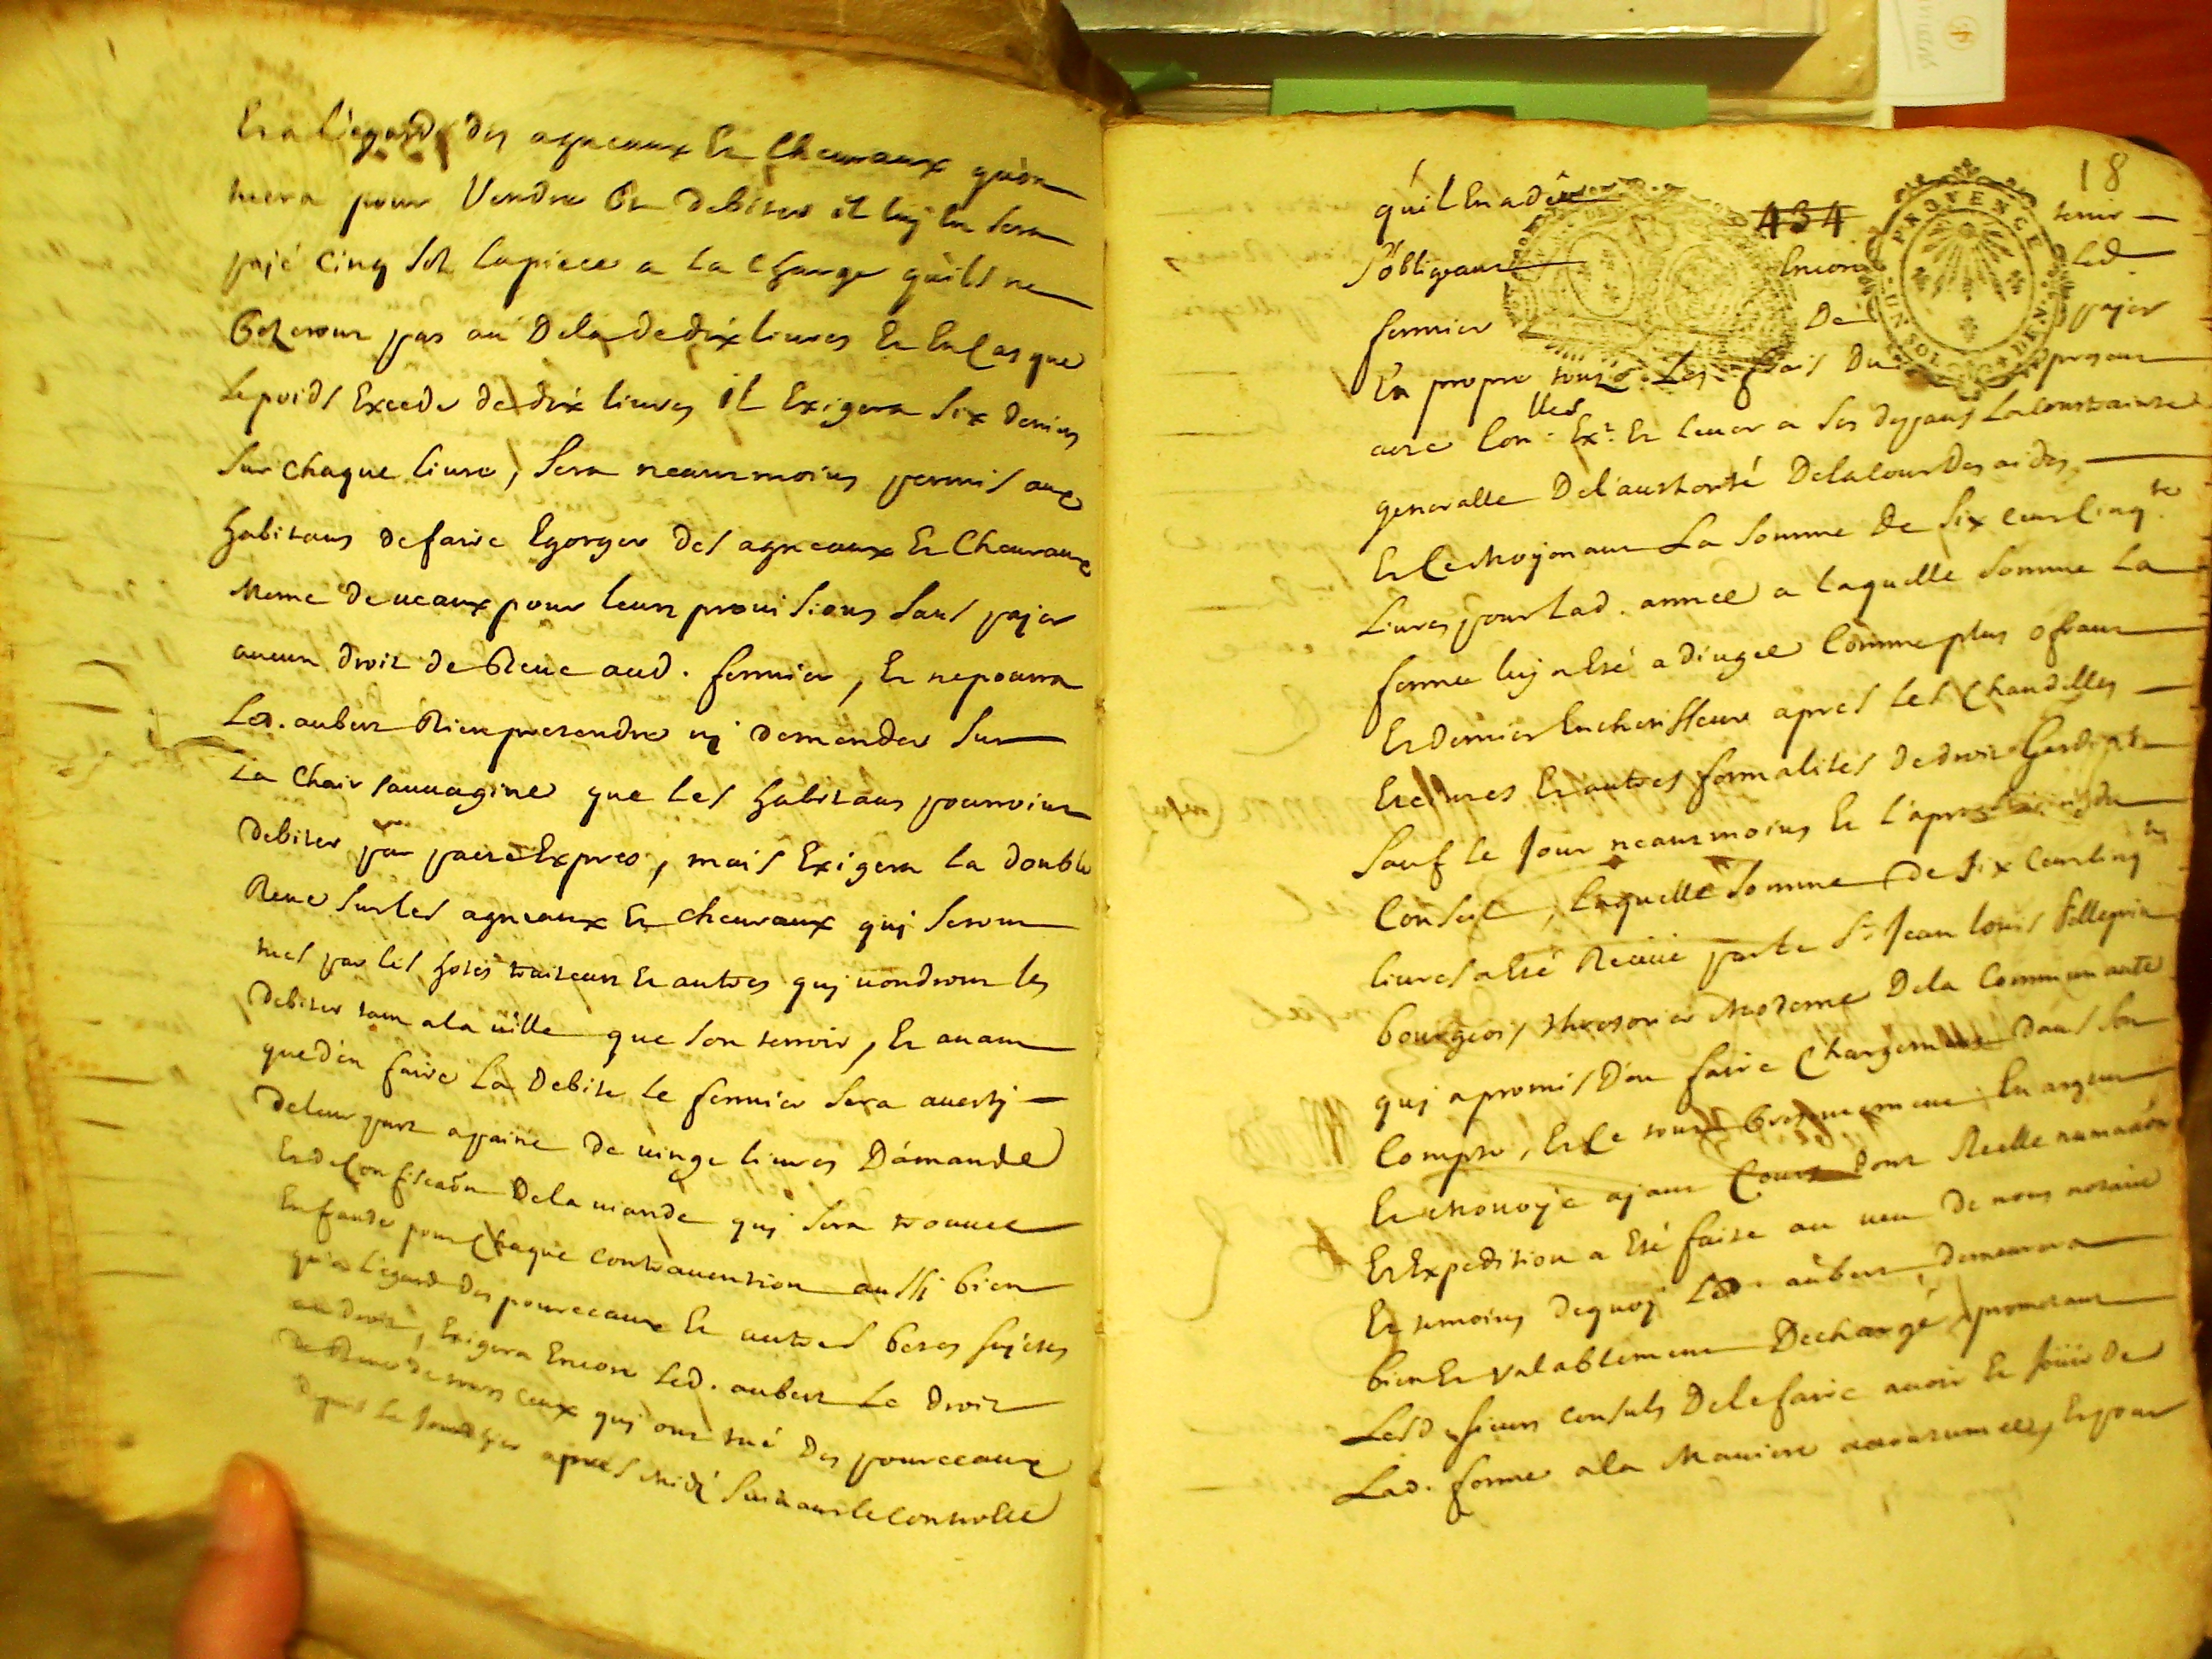 Et a l'egard des agneaux Et Chevraux qu'on
tuera pour Vendre Et debiter il luy En sera
payé cinq sols lapiece a la charge quils ne
peseront pas au dela de dix livres Et En Cas que
le poids Excede de dix livres il Exigera six deniers
sur chaque livre, sera neantmoins permis aux
habitans de faire Egorger des agneaux Et Chevraux
meme de veaux pour leurs provisions sans payer
aucun droit de Reve aud. fermier, Et ne pourra
Led. aubert Rien pretendre ny demander sur
La Chair sauvagine que les habitans pourroint
debiter par pacte Expres, mais Exigera la double
Reve sur les agneaux Et chevraux quy seront
tués par les hotes traiteurs Et autres quy voudront les
debiter tant a la ville que son terroir, Et avant
que d'en faire La debite le fermier sera averty
de leur part a paine de vingt livres D'amande
Et de Confiscaon De la viande quy sera trouvee
En fraude pour Chaque contravention aussi bien
qu'a l'egard des pourceaux Et autres betes sujetes
au droit, Exigera Encore Led. aubert Le droit
de Reve de tous ceux quy ont tué des pourceaux
depuis Le Jourdhier apres midi suivant le controlle
18
434
qu'il En a dû tenir
s'obligeant Encore Led.
fermier De payer
En propre tous Les frais du present
acte Con.lles Ext. Et lever a ses depans La contrainte
generalle De l'authorité De la Cour des aides
Et Ce moyenant La somme de six cens cinq.te
Livres pour lad. annee a laquelle somme La
ferme luy a Eté adiugee Comme plus ofrant
Et dernier Encherisseur apres les Chandelles
Eteintes Et autres formalités de droit
sauf le Jour neantmoins Et l'aprobation du
Conseil, Laquelle somme de six Cens cinq.te
livres a Eté Receüe par le Sr Jean louis Pellegrin
bourgeois, thresorier moderne De la Communauté
quy a promis D'en faire Chargement dans son
Compte, Et Ce tout presentement En argent
Et monoye ayant Cours dont Reelle numeraon
Et Expedition a Eté faite au veu de nous notaire
Et temoins de quoy Led. aubert demeurera
bien Et valablement Dechargé, prometant
Lesd. sieurs consuls De le faire avoir Et joüir de
Lad. ferme a la Maniere acoutumee, Et pour
PROVENCE
UN SOL
DEN.